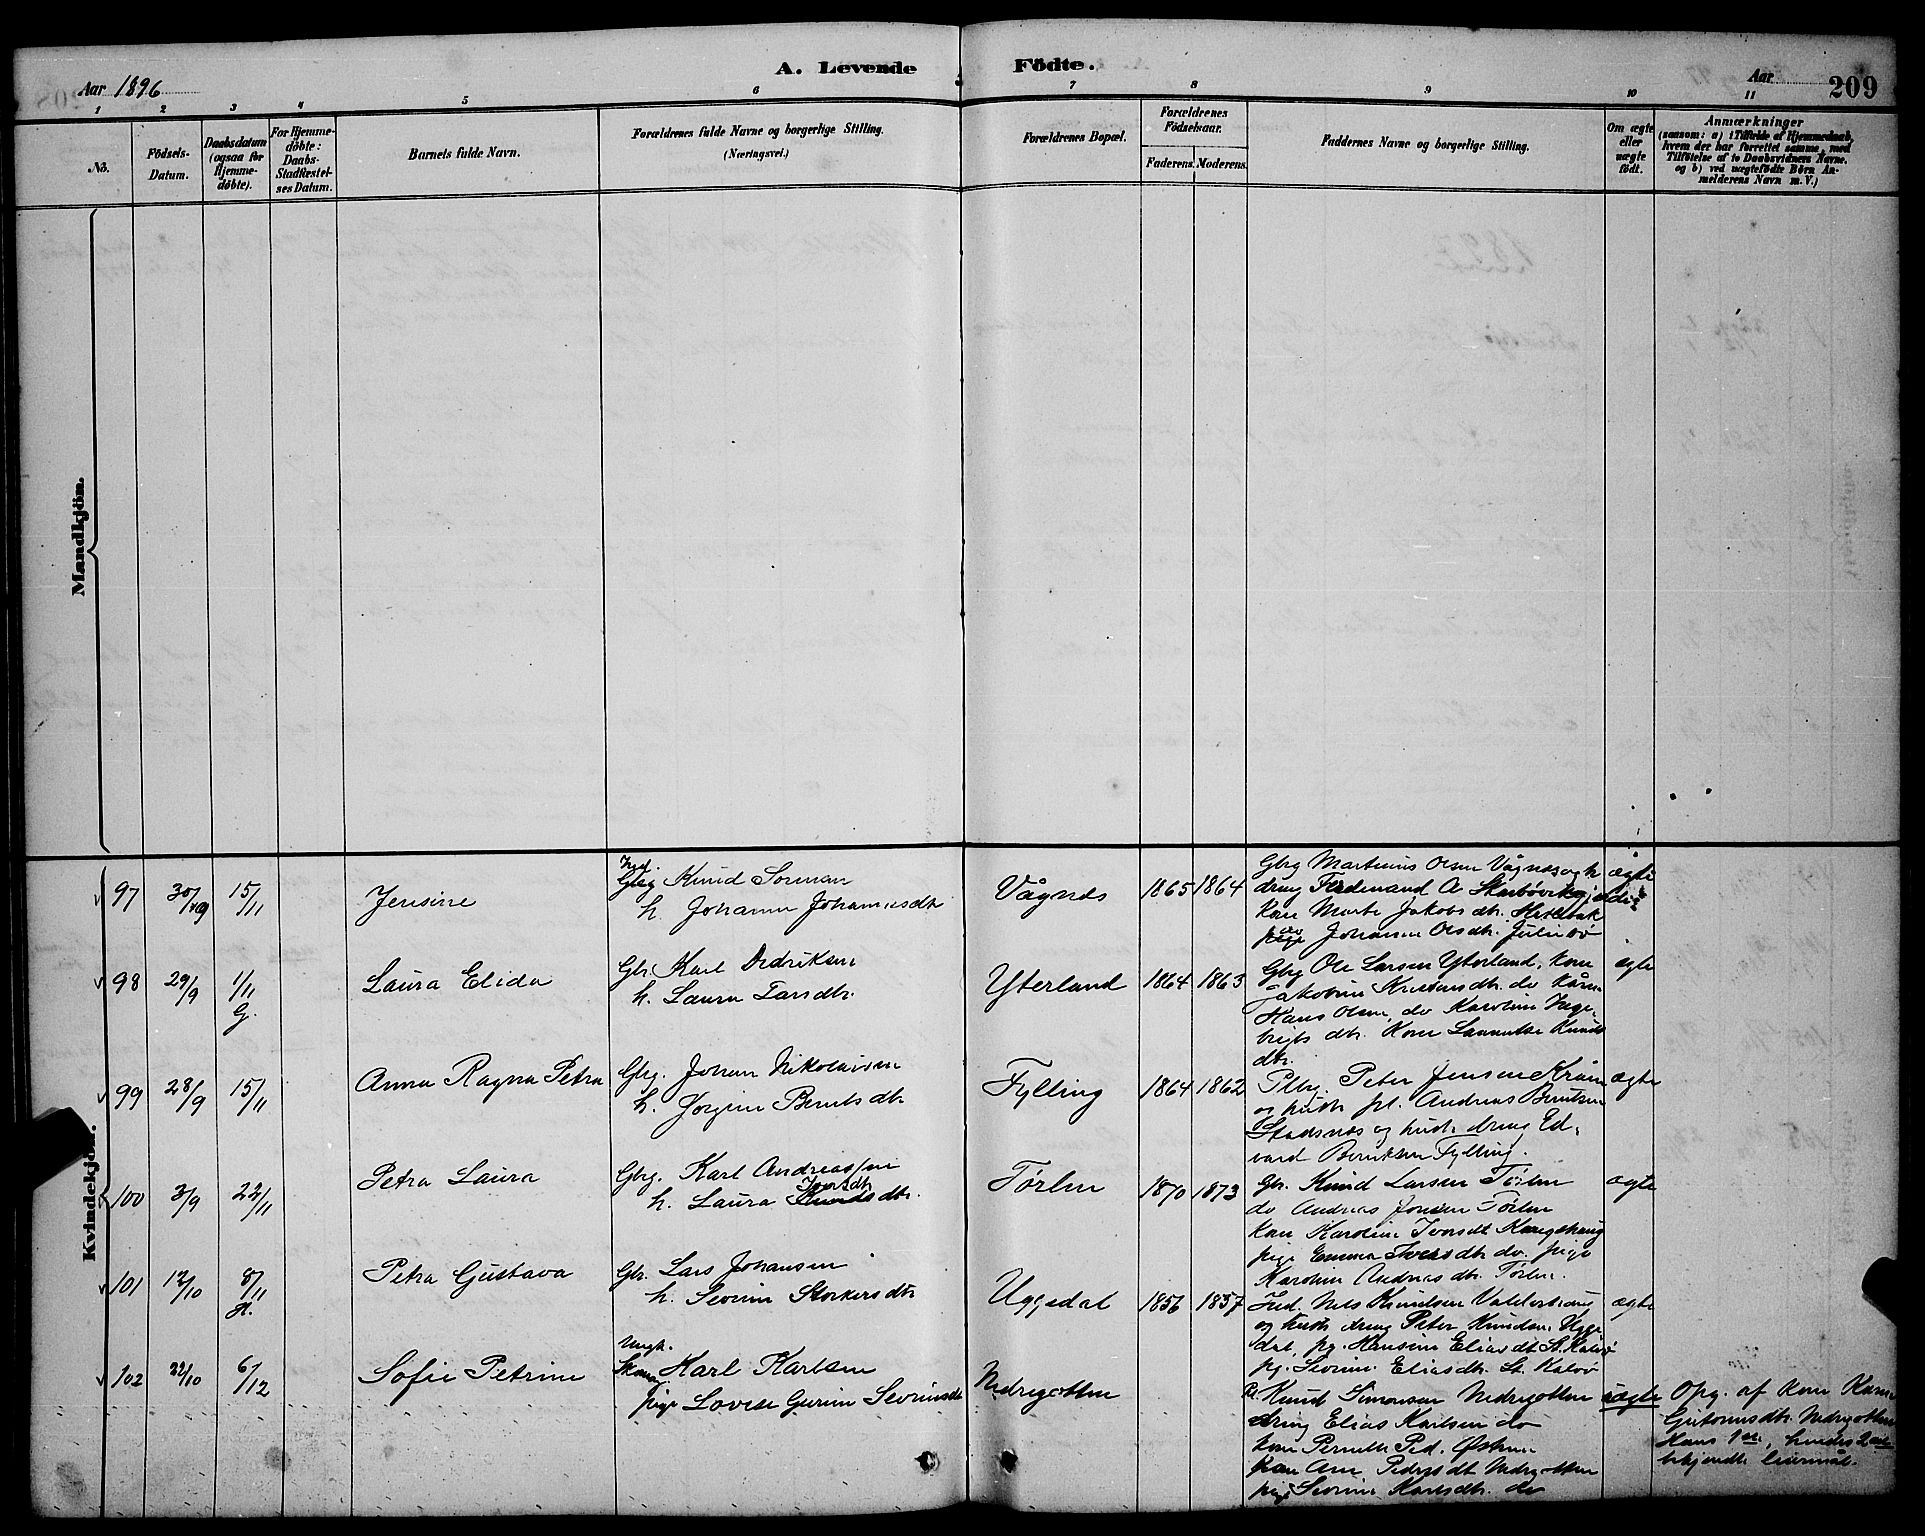 A. Levende Födte.
Aar 1896
Aar 209
1 2 3 4 5 6 7 8 9 10 11
No.
Födsels-Datum.
Daabsdatum (ogsaa for Hjemme-döbte).
For Hjemme-döbte: Daabs-Stadfæstel-ses Datum.
Barnets fulde Navn.
Forældrenes fulde Navne og borgerlige Stilling.
(Næringsvei.)
Forældrenes Bopæl.
Forældrenes Födselsaar.
Faderens. Moderens.
Faddernes Navne og borgerlige Stilling.
Om ægte eller uægte födt.
Anmærkninger
(saasom: a) i Tilfælde af Hjemmedaab,
hvem der har forrettet samme, med
Tilföielse af to Daabsvidners Navne.
og b) ved uægtefödte Börn An-
melderens Navn m. V.)
Mandkjön.
Kvindekjön.
97 30/10 15/11 Jensine
Gbrg Knud Sorensen
h. Johanne Johannesdtr
Vågnes 1865 1864
Gbrg Martinus Olsen Vågnes og k
dreng Ferdinand A
kone Marte Jakobsdtr.
Johanne Olsdtr. Julebø
ægte
98 29/9 1/11 G. Laura Elida
Gbr. Karl Didriksen
h. Laura Larsdtr.
Yterland 1864 1863
Gbrg Ole Larsen Yterland, kone
Jakobine dtr. do
Hans Olsen do Karoline Inge-
brigts dtr. Kone Knuds
dtr.
ægte
99 28/9 15/11 Anna Ragna Petra
Gbrg. Johan Nikolaisen
h. Jorgine Berntsdtr
Fylling 1864 1862
Peter Jensen
og hustr pl. Andreas Berntsen
Stadsnes og hust. dreng Ed-
vard Fylling.
ægte
100 3/9 22/11 Petra Laura
Gbrg. Karl Andreassen
h. Laura Iversdtr
Tørlen 1870 1873
Gbr. Knud Larsen Tørlen
do Andreas Jensen Tørlen
kone Karoline
pige Emma Iversdtr do. pige
Karoline Andreas dtr. Tørlen.
ægte
101 12/10 8/11 H. Petra Gustava
Gbr. Lars Johansen
h. Sevrine dtr
Uggedal 1856 1857
Ind. Nils Knudsen
og hustr dreng Peter Knudsen Ugge-
dal, pg. Hansine Eliasdt St. Kalvø
pg. Sevrine Eliasdtr. St. Kalvø
ægte
102 22/10 6/12 Sofie Petrine
Ungk. Karl Karlsen
pige Lovise Gurine Sevrinsdtr
Nedregotten
Knud Simonsen Nedregotten
dreng Elias Karlsen do
kone Pernille Ped.
kone Ane Pedersdt Nedregotten
pige Sevrine Karlsdtr. do
uægte
Opg. af kone Karen
Gutormsdtr. Nedregotten
Hans 1ste, hendes 2det
bekjendte leiermål.